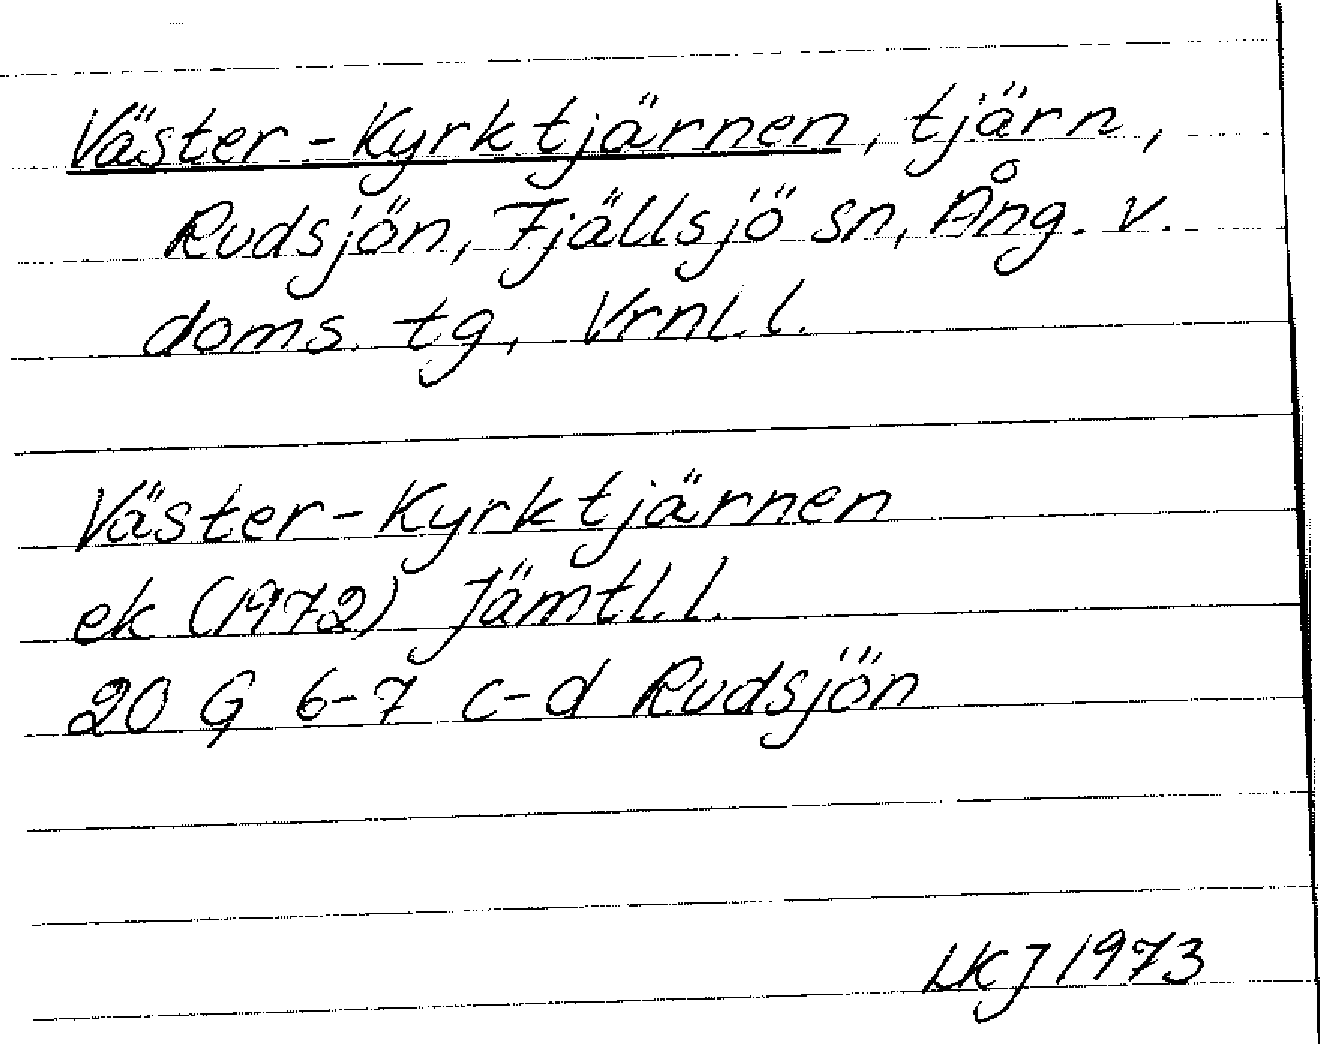 Väster-Kyrktjärnen, tjärn,
Rudsjön, Fjällsjö sn, Ång. v.
doms. tg, Vrnl. l.
Väster-Kyrktjärnen
ek (1972) Jämtl. l.
20 G 6-7 c-d Rudsjön
LKJ 1973